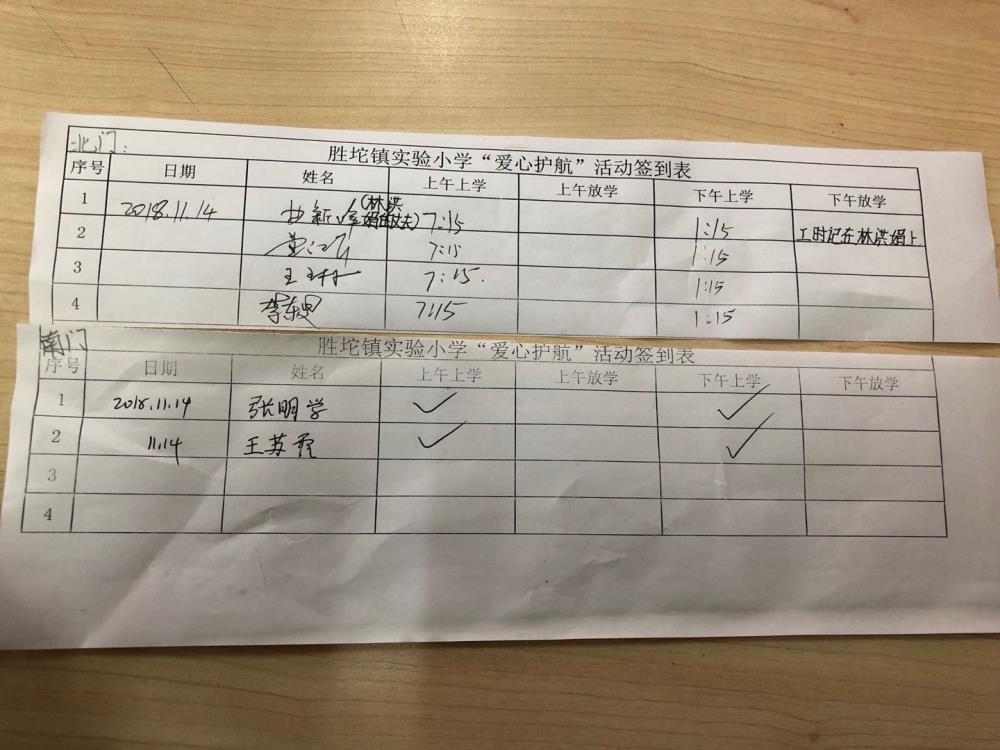 北门:
胜坨镇实验小学“爱心护航”活动签到表
序号 日期 姓名 上午上学 上午放学 下午上学 下午放学
1 2018.11.14 (林洪娟的丈夫) 7:15 1:15 工时记在林洪娟上
2 7:15 1:15
3 7:15. 1:15
4 7:15 1:15
南门
胜坨镇实验小学“爱心护航”活动签到表
序号 日期 姓名 上午上学 上午放学 下午上学 下午放学
1 2018.11.14 张明学 ✓ ✓
2 11.14 王苏 ✓ ✓
3
4